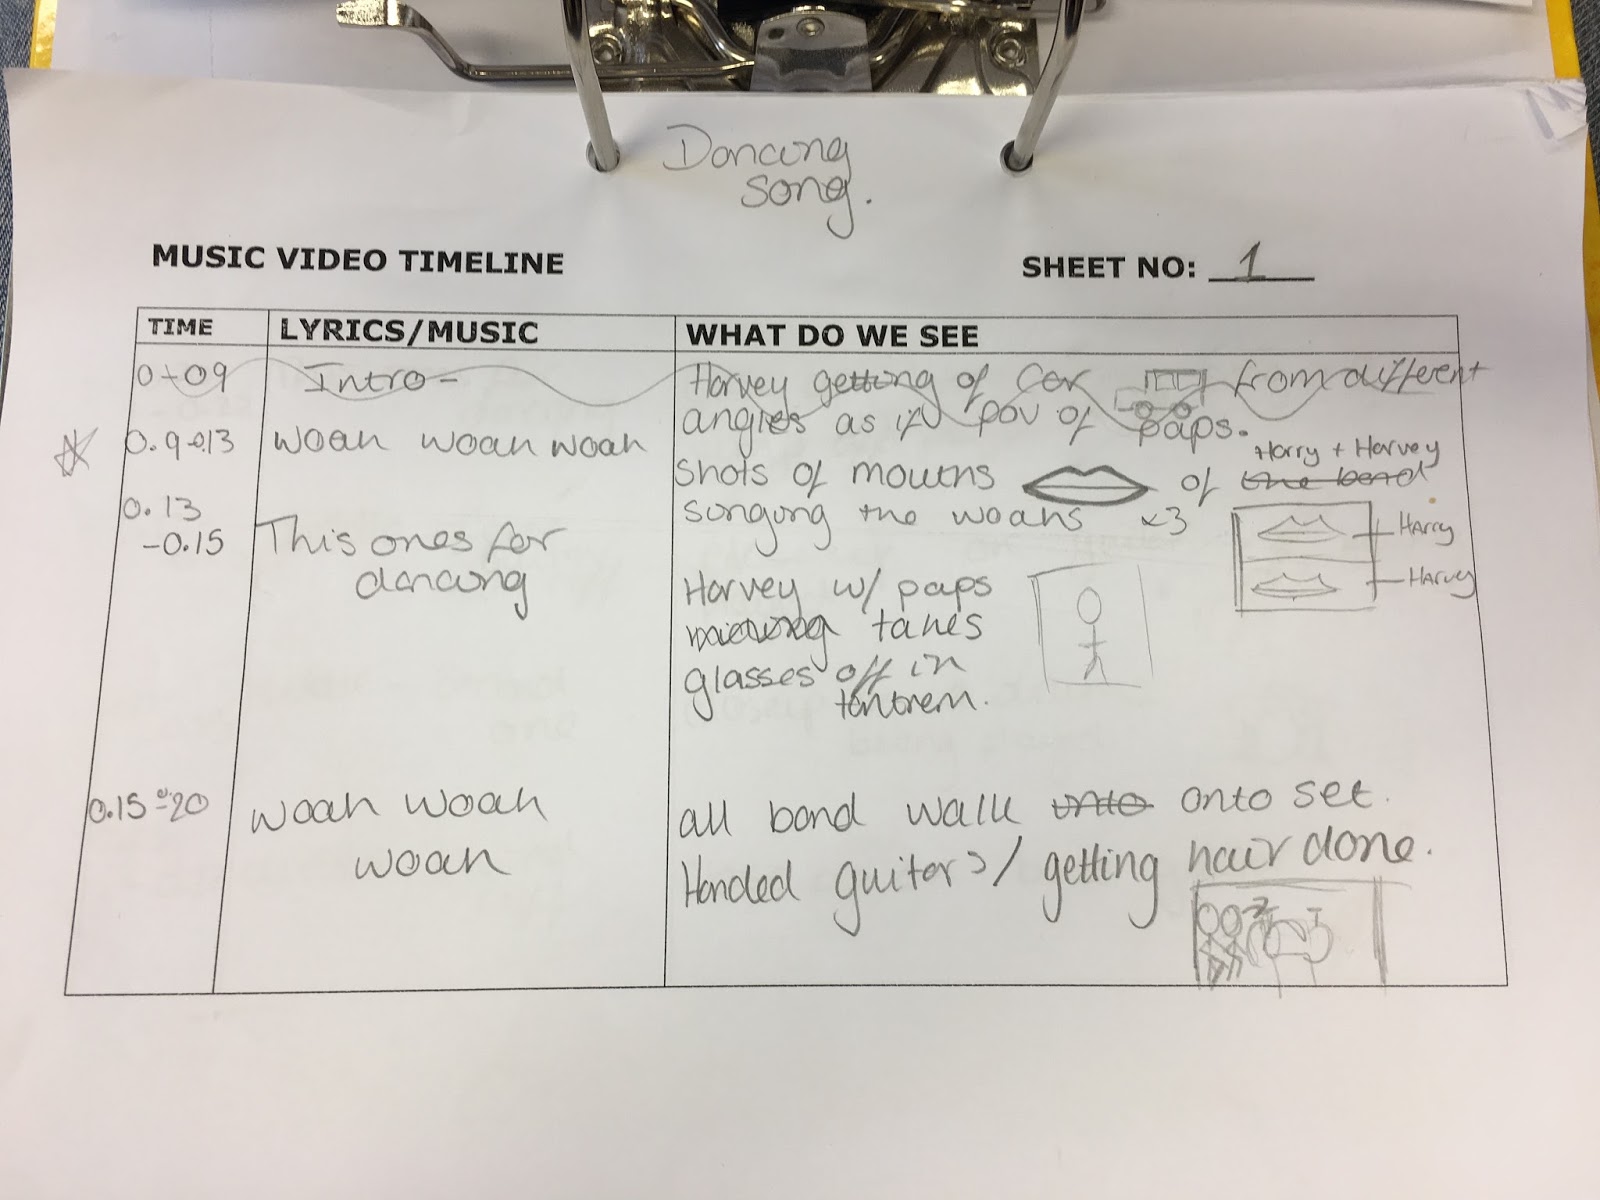 Dancing
song.
MUSIC VIDEO TIMELINE
SHEET NO: 1
TIME
LYRICS/MUSIC
WHAT DO WE SEE
0-09
Intro-
Harvey getting of car from different
angles as if pov of paps.
0.9-0.13
woah woah woah
shots of mouths of the band Harry + Harvey
singing the woahs x3
Harry
Harvey
0.13
-0.15
This ones for
dancing
Harvey w/ paps
takes
glasses off in
tantrem.
0.15-0.20
woah woah
woah
all band walk onto onto set.
Handed guitars/ getting hair done.